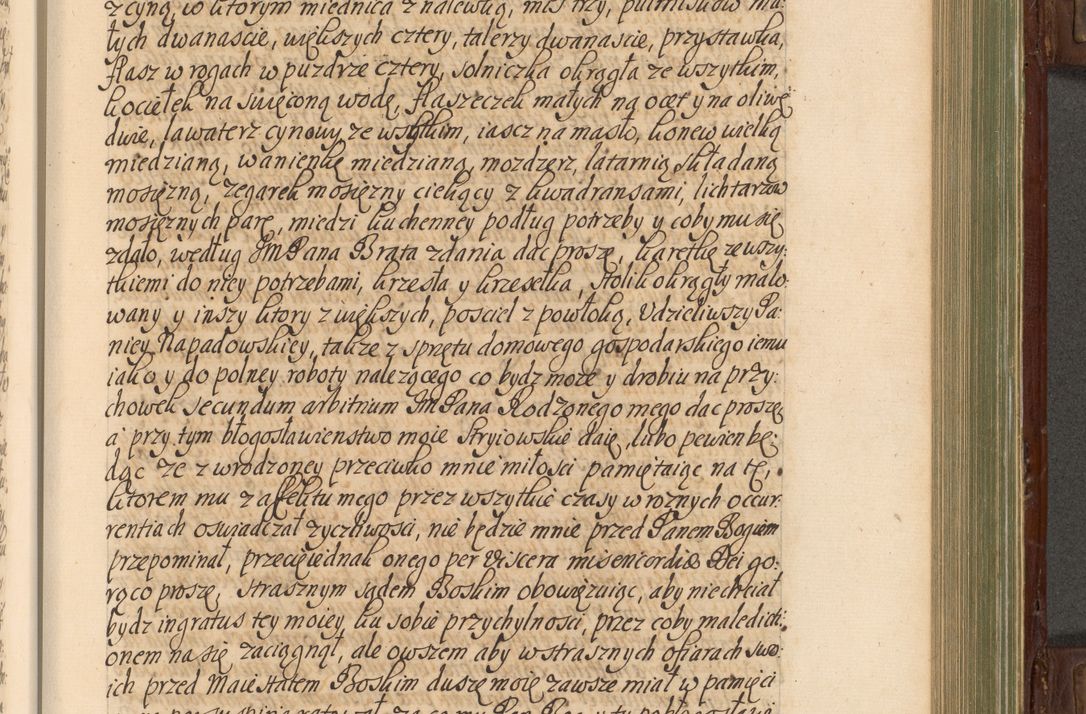 z cyną, w ktorym miednica z nalewką, mis trzy, pułmiskow ma:
łych dwanascie, większych cztery, talerzy dwanascie, przystawka,
flasz w rogach w puzdrze cztery, solniczka okrągła ze wszytkim,
kociełek na swięconą wodę, flaszeczek małych na ocet y na oliwę
dwie, lawaterz cynowy ze wszytkim, iascz na masło, konew wielką
miedzianą, wanienkę miedzianą, mozdzerz, latarnią składaną
mosięzną, zegarek mosięzny ciekący z kwadransami, lichtarzow
mosięznych parę, miedzi kuchenney podług potrzeby y coby mu się
zdało, według JmPana Brata zdania dac proszę, karetkę ze wszy:
tkiemi do niey potrzebami, krzesła y krzesełka, stolik okrągły malo:
wany y inszy ktory z większych, posciel z powłoką, Udzieliwszy Pa:
niey Napadowskiey, takze z sprętu domowego gospodarskiego iemu
iako y do polney roboty nalezącego co bydz moze y drobiu na przy:
chowek secundum arbitrium JmPana Rodzonego mego dac proszę,
a przy tym błogosławienstwo moie Stryiowskie daię, lubo pewien bę:
dąc ze z wrodzoney przeciwko mnie miłosci pamiętaiąc na tę,
ktorem mu z affektu mego przez wszytkie czasy w roznych occur:
rentiach oswiadczał zyczliwosci, nie będzie mnie przed Panem Bogiem
przepominał, przecięiednak onego per viscera misericordiae Dei go:
rąco proszę, strasznym sądem Boskim obowięzuiąc, aby niechciał
bydz ingratus tey moiey ku sobie przychylnosci, przez coby maledicti:
onem na się zaciągnął, ale owszem aby w strasznych ofiarach swo:
ich przed Maiestatem Boskim duszę moię zawsze miał w pamięci